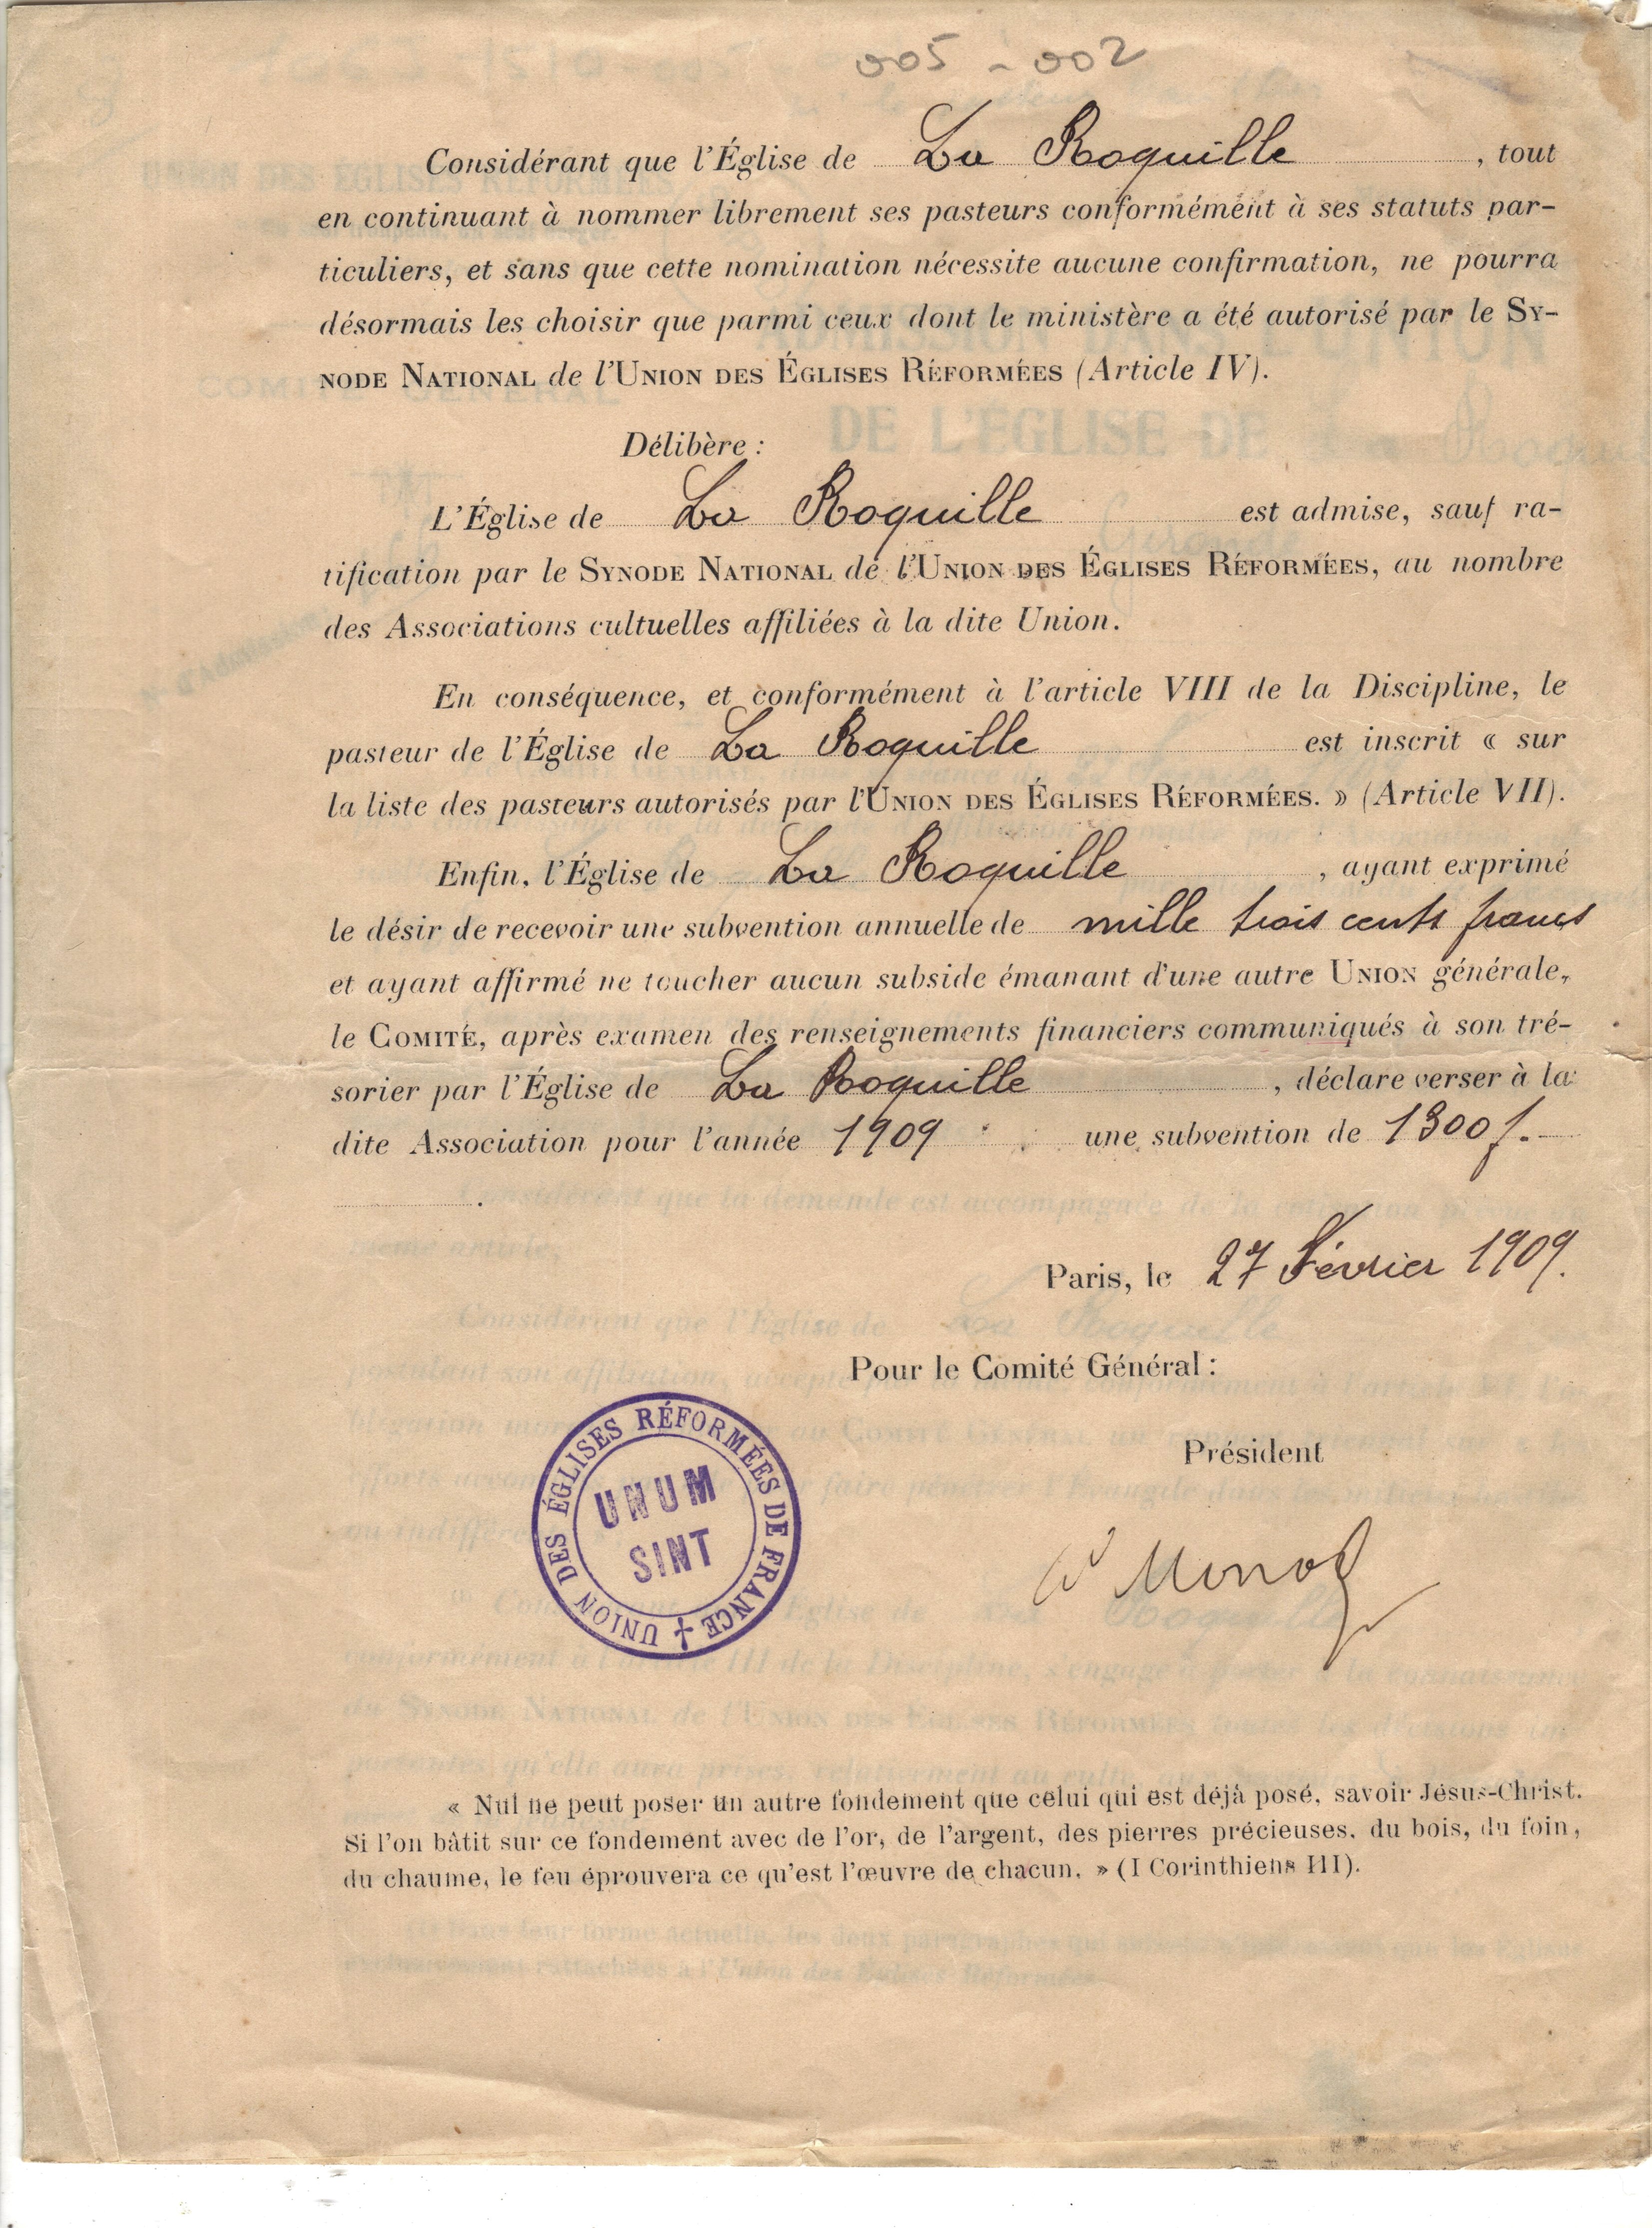 005 - 002
Considérant que l'Église de La Roquille, tout
en continuant à nommer librement ses pasteurs conformément à ses statuts par-
ticuliers, et sans que cette nomination nécessite aucune confirmation, ne pourra
désormais les choisir que parmi ceux dont le ministère a été autorisé par le SY-
NODE NATIONAL de l'UNION DES ÉGLISES RÉFORMÉES (Article IV).
Délibère :
L'Église de La Roquille est admise, sauf ra-
tification par le SYNODE NATIONAL de l'UNION DES ÉGLISES RÉFORMÉES, au nombre
des Associations cultuelles affiliées à la dite Union.
En conséquence, et conformément à l'article VIII de la Discipline, le
pasteur de l'Église de La Roquille est inscrit « sur
la liste des pasteurs autorisés par l'UNION DES ÉGLISES RÉFORMÉES. » (Article VII).
Enfin, l'Église de La Roquille, ayant exprimé
le désir de recevoir une subvention annuelle de mille trois cents francs
et ayant affirmé ne toucher aucun subside émanant d'une autre UNION générale,
le COMITÉ, après examen des renseignements financiers communiqués à son tré-
sorier par l'Église de La Roquille, déclare verser à la
dite Association pour l'année 1909 une subvention de 1300 f.-
.
Paris, le 27 Février 1909.
Pour le Comité Général :
Président
Monod
UNION DES ÉGLISES RÉFORMÉES DE FRANCE
UNUM
SINT
« Nul ne peut poser un autre fondement que celui qui est déjà posé, savoir Jésus-Christ.
Si l'on bâtit sur ce fondement avec de l'or, de l'argent, des pierres précieuses, du bois, du foin,
du chaume, le feu éprouvera ce qu'est l'œuvre de chacun. » (I Corinthiens III).